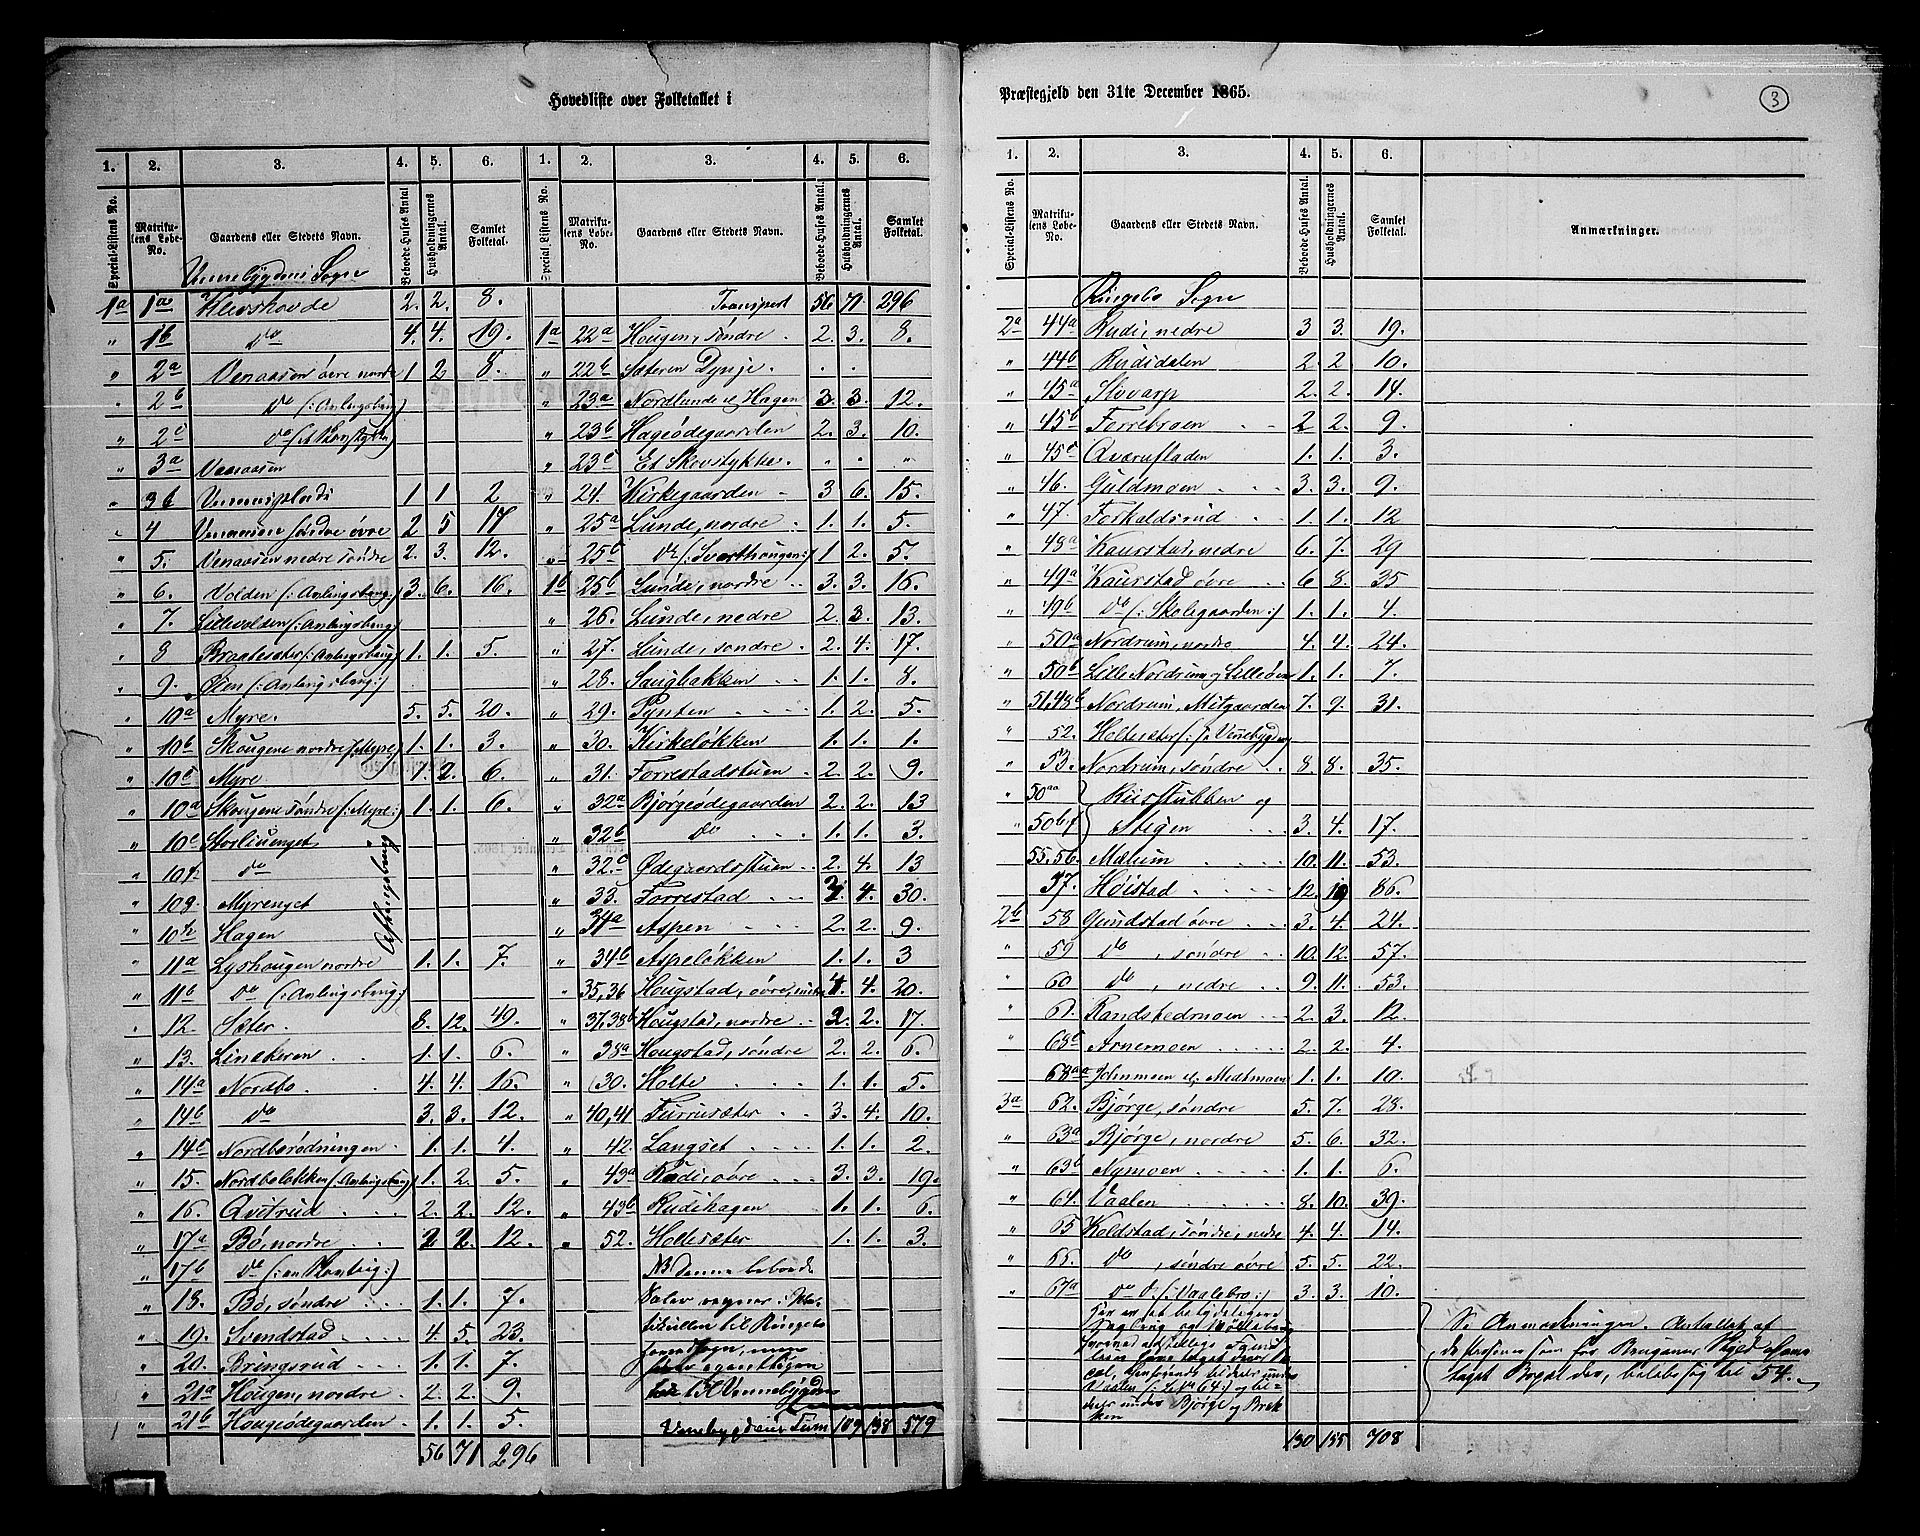 Hovedliste over Folketallet i
1. 2. 3. 4. 5. 6. 1. 2. 3. 4. 5. 6.
Special-Listens No. Matrikulens Løbe-No. Gaardens eller Stedets Navn. Beboede Huses Antal. Husholdningernes Antal. Samlet Folketal. Special-Listens No. Matrikulens Løbe-No. Gaardens eller Stedets Navn. Beboede Huses Antal. Husholdningernes Antal. Samlet Folketal.
Vennebygdens Sogn
1a 1a Klevshovde 2. 2. 8.
" 1b do 4. 4. 19.
" 2a Venaasen øvre nordre 1 2 8.
" 2b do
" 2c do
" 3a Venaasen
" 3b 1 1 2
" 4 Venaasen søndre øvre 2 5 17
" 5. Venaasen nedre søndre 2. 3. 12.
" 6. Volden 3. 6. 16.
" 7. Lillevolden
" 8 Braatesæter 1. 1. 5.
" 9. Øien
" 10a Myre. 5. 5. 20.
" 10b Skougene nordre (Myre) 1. 1. 3.
" 10c Myre 1. 2. 6.
" Skougene søndre (: Myre:) 1. 1. 6.
" 10e Storliuenget
" 10f do
" 10g. Myrenget
" 10h Hagen
" 11a Lyshougen nordre 1. 1. 7.
" 11b do
" 12. Sæter. 8. 12. 49.
" 13. Linekeren 1. 1. 6.
" 14a Nordbo. 4. 4. 16.
" 14b do 3. 3. 12.
" 14c Nordborødningen 1. 1. 4.
" 15. Nordboløkken 1. 2. 5.
" 16. Qvitrud 2. 2. 12.
" 17a Bø, nordre 2 2. 12.
" 17b do
" 18. Bø, søndre 1. 1. 7.
" 19. Svendstad 4. 5. 23.
" 20. Bringsrud 1. 1. 7.
" 21a Hougen, nordre 2. 2. 9.
" 21b Hougødegaarden 1. 1. 5.
56 71 296
Transport 56 71 296
1a 22a Hougen, søndre 2. 3. 8.
" 22b Sæteren Dynje . . .
" 23a Nordlunde & Hagen 3. 3. 12.
" 23b Hageødegaarden 2. 3. 10.
" 23c Et Skovstykke . . "
" 24. Kirkegaarden 3 6. 15.
" 25a Lunde, nordre 1. 1. 5.
25c do (: Svarthougen:) 1 2. 5.
1b 25b Lunde, nordre 3. 3. 16.
26. Lunde, nedre 2. 3. 13.
" 27. Lunde, søndre 2. 4. 17.
" 28. Haugbakken 1. 1. 8.
" 29. Pynten 1. 2. 5.
" 30. Kirkeløkken 1. 1. 1.
" 31. Forrestadstuen 2. 2. 9.
" 32a Bjørgeødegaarden 2. 2. 13
" 32b do 1. 1. 3.
" 32c Ødegaardsstuen 2. 4. 13
" 33. Forrestad 4. 30.
" 34a Aspen 2. 2. 9.
" 34b Aspeløkken 1. 1. 3
" 35, 36 Hougstad, øvre, 4. 4. 20.
" 37, 38b Hougstad, nordre 2. 2. 17.
" 38a Hougstad, søndre 2. 2. 6.
" Holte 1. 1. 5.
" 40, 41 Furrusæter 3. 4. 10.
" 42. Langset 1. 1. 2.
" 43a Rudi øvre 3. 3. 19.
" 43b Rudihagen 1. 1. 6.
" 52. Holtesæter 1. 1. 3.
NB Denne beboede
til Ringebo
egentligen
til Vennebygden
Vennebygdens Sum 109 138 579
Præstegjeld den 31te December 1865.
3
1. 2. 3. 4. 5. 6.
Special-Listens No. Matrikulens Løbe-No. Gaardens eller Stedets Navn. Beboede Huses Antal. Husholdningernes Antal. Samlet Folketal. Anmærkninger.
Ringebo Sogn
2a 44a Rudi, nedre 3 3. 19.
" 44b Rudidalen 2. 2 10.
" 45a Stovarp 2. 2. 14.
" 45b Forrebroen 2 2. 9.
" 45c Qværnfladen 1. 1. 3.
" 46. Guldmoen 3. 3. 9.
" 47. Forkaldsrud 1. 1. 12
" 48a Kaurstad, nedre 6. 7. 29
" 49a Kaurstad øvre 6 8. 35
" 49b do (: Skolegaarden:) 1. 1. 4.
" 50a Nordrum, nordre 4. 4. 24.
" 50b Lille Nordrum og Lilleøen 1. 1. 7.
" 51, 48b Nordrum, Mitgaarden 7. 9. 31.
" 52. Holtesæter (: se Vennebygden)
" 53. Nordrum, søndre 8. 8. 35.
" og
" Stigen 3. 4. 17.
55. 56 Mælum 10. 11. 53.
57. Høistad 12. 19 86.
2b 58 Gundstad øvre 3. 4. 24.
" 59 do , søndre 10. 12. 57.
" 60 do , nedre 9. 11. 53.
" 61. Randkledmoen 2. 3. 12.
" 68c Arnemoen 2. 2. 4.
" 68aa Johnmoen og Medtmoen 1. 1. 10.
3a 62. Bjørge, søndre 5. 7. 28.
" 63a Bjørge, nordre 5. 6. 32.
" 63b Nymoen 1. 1. 6.
" 64. Vaalen 8. 10. 39.
" 65 Koldstad, søndre, nedre 4. 4. 14.
" 66. do , søndre øvre 5. 5. 22.
" 67a do (: Vaalebro:) 3. 3. 10.
Vaalen (: L. No 64:) og
under Bjørge og Brekken
Anmærkningen. Antallet af
de Personer som
beløb sig til 54.
130 155 708